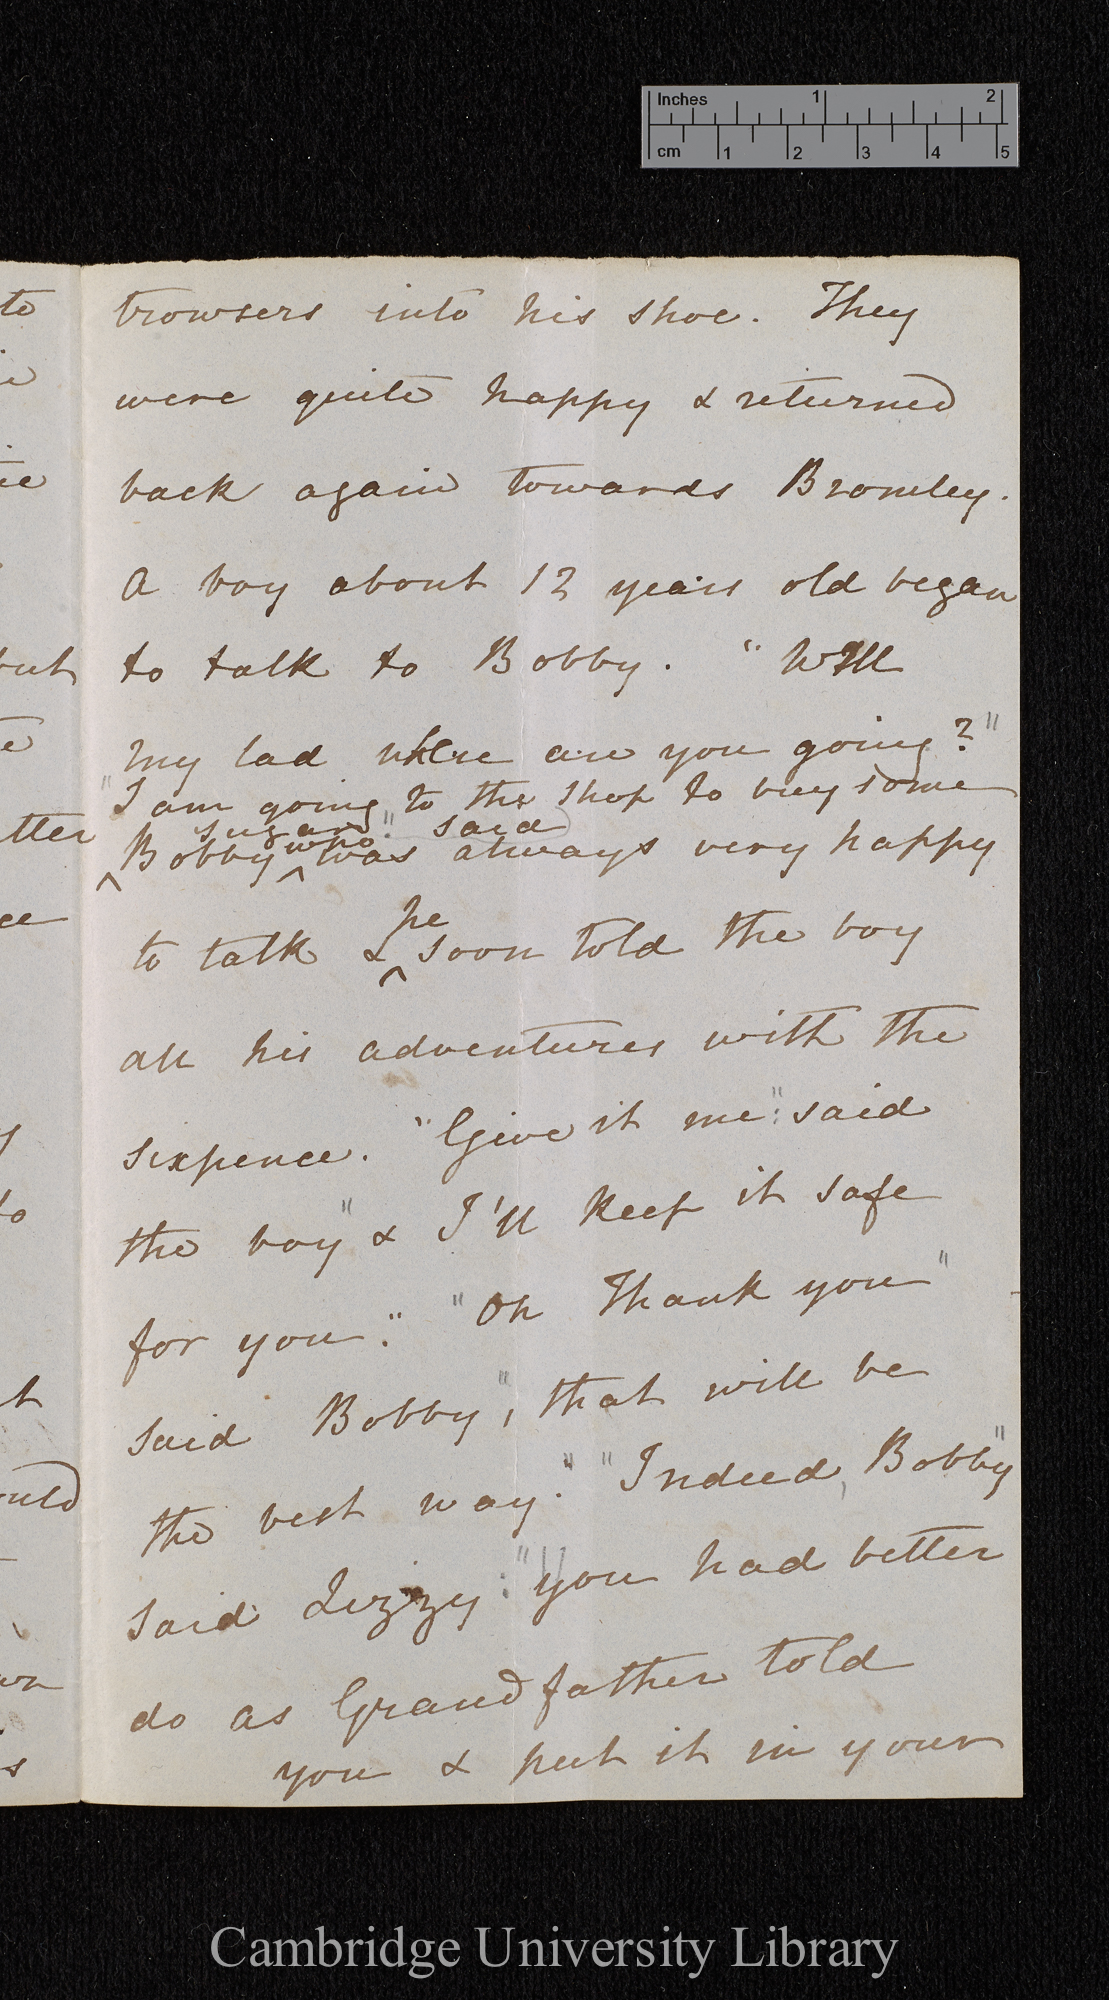 Inches 1 2
cm 1 2 3 4 5
to
trowsers into his shoe. They
were quite happy & returned
back again towards Bromley.
A boy about 12 years old began
but
to talk to Bobby. "Well
my lad where are you going?"
"I am going to the shop to buy some
sugar." said
who
Bobby was always very happy
he
to talk & soon told the boy
all his adventures with the
sixpence. "Give it me" said
to
the boy "& I'll keep it safe
for you." "Oh Thank you"
said Bobby, "that will be
the best way." "Indeed, Bobby"
said Lizzy: "you had better
do as Grandfather told
you & put it in your
Cambridge University Library